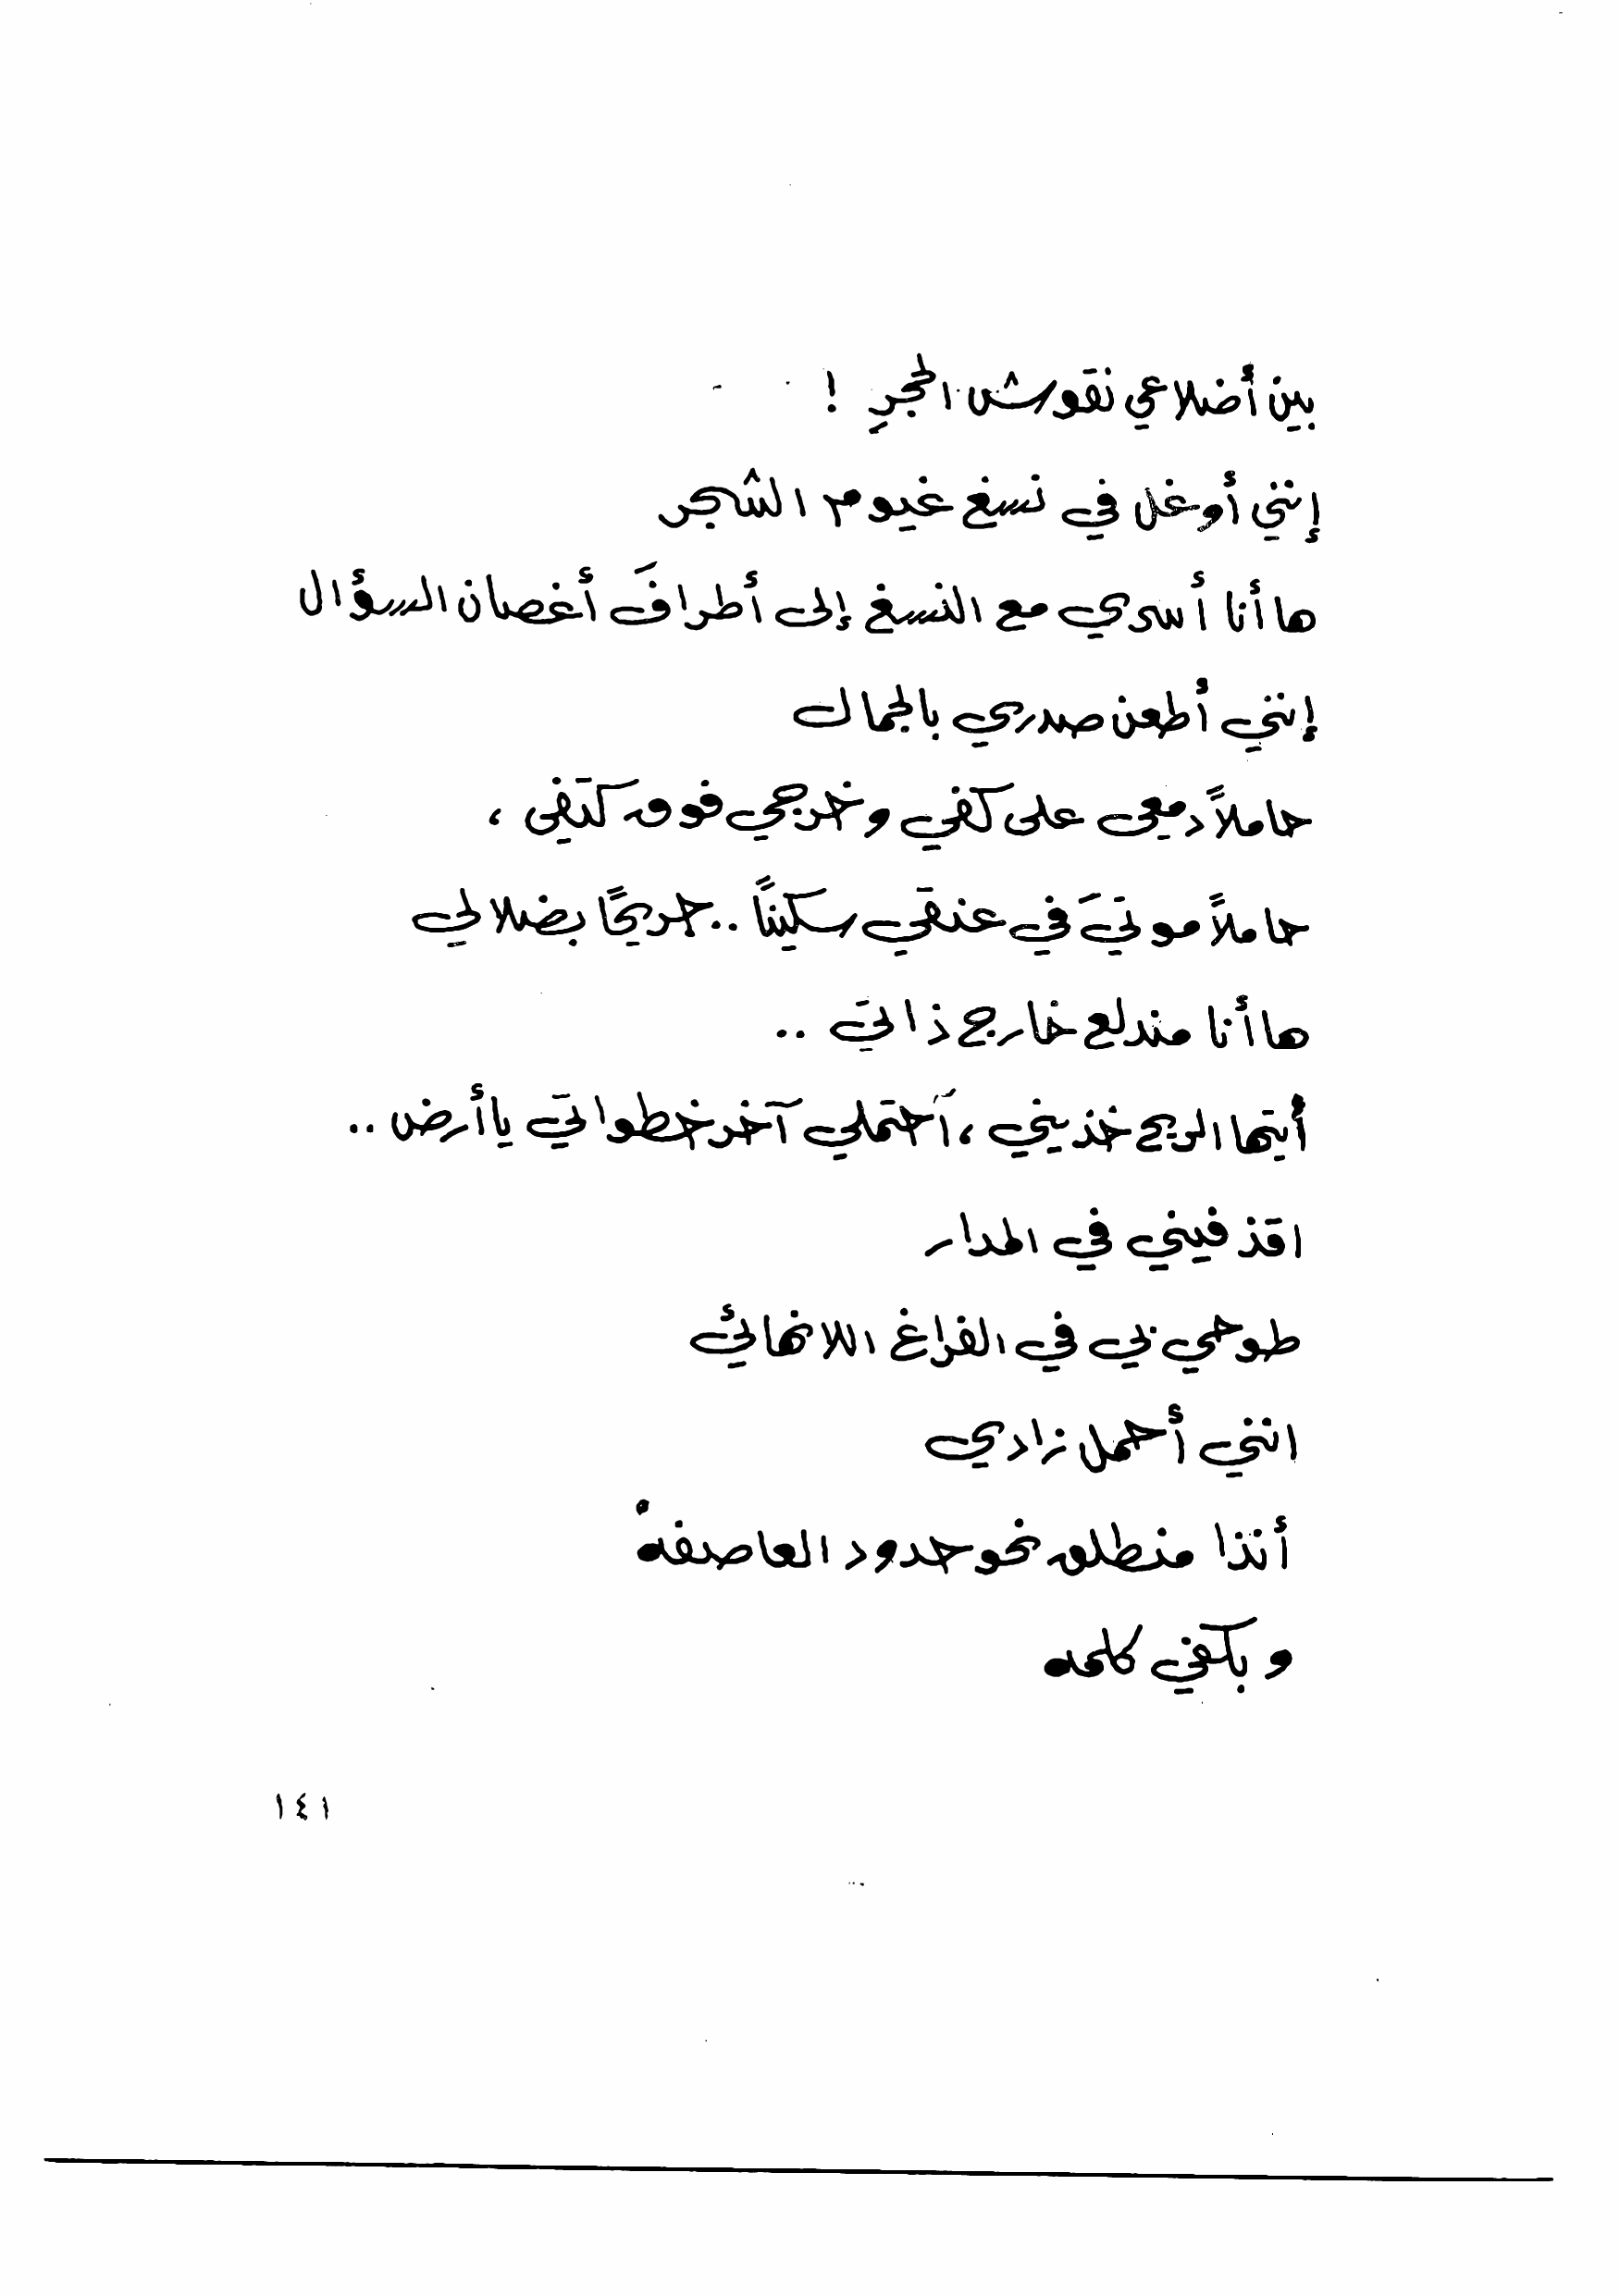 بين أضلاعي نقوش الحجرِ !
إنني أوغل في نسغ غيوم الشجر
ها أنا أسري مع النسغ إلى أطرافَ أغصان السؤال
إنني أطعن صدري بالجمال
حاملاً دمعي على كفي وخرجي فوق كتفي ،
حاملاً موتيَ في عنقي سكيناً .. جريحًا بضلالي
ها أنا مندلع خارج ذاتي ..
أيتها الريح خذيني ، آحتملي آخر خطواتي يا أرض ..
اقذفيني في المدار
طوحي بي في الفراغ اللانهائي
انني أحمل زادي
أنذا منطلق نحو حدود العاصفهْ
وبكفي كلمه
١٤١